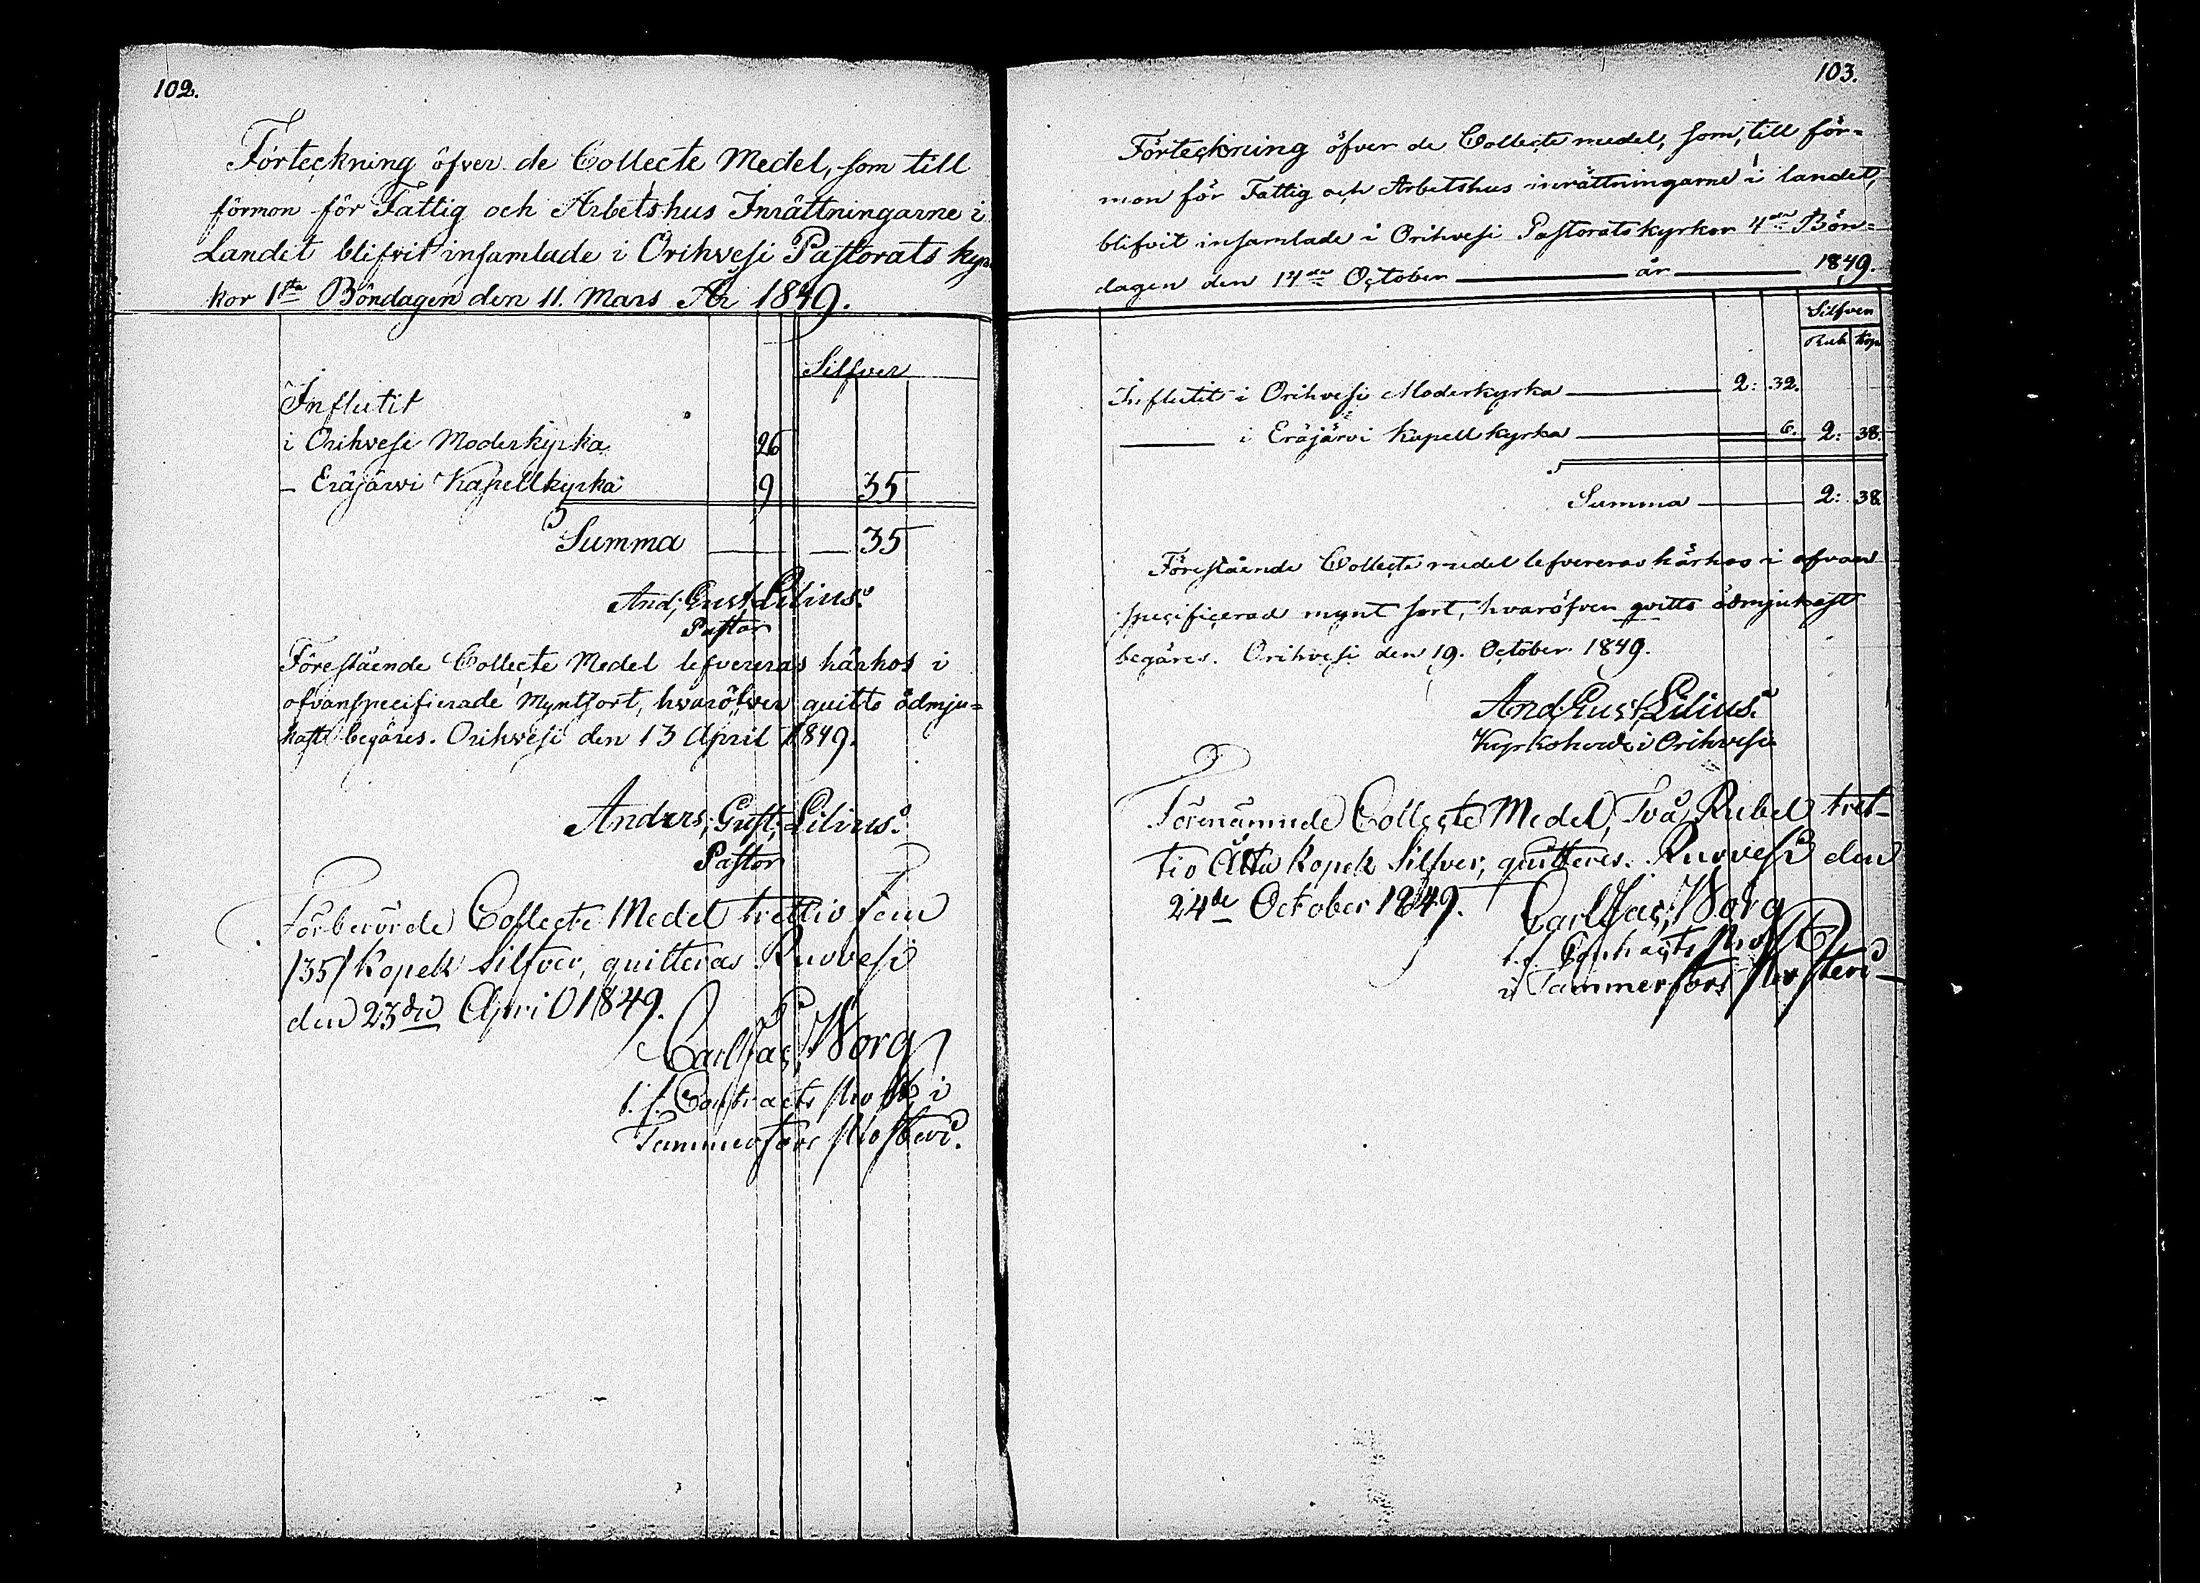 102.
Förteckning öfver de Collecte Medel, som till
förmon för Fattig och Arbetshus Inrättningarne i
Landet blifvit insamlade i Orihvesi Pastorats kyr
kor 1sta Böndagen den 11. Mars År 1849.
Silfver
Influtit
i Orihvesi Moderkyrka 26
- Eräjärvi Kapellkyrka 9 35
Summa — — 35
And; Gust; Lilius.
Pastor
Förestående Collecte Medel lefvereras härhos i
ofvanspecifierade Myntsort, hvaröfver quitto ödmju=
kast begäres. Orihvesi den 13 April 1849.
Anders; Gust; Lilius.
Pastor
Förberörde Collecte Medel trettio fem
/35/ Kopek Silfver, quitteras. Ruovesi
den 23die April 1849.
Carl Jac; Worg
t. f. Contracts Prost i
Tammerfors Prosteri.
103.
Förteckning öfver de Collecte medel, som, till för=
mon för Fattig och Arbetshus inrättningarne i landet,
blifvit insamlade i Orihvesi Pastorats kyrkor 4de Bön=
dagen den 14de October — år — 1849.
Silfver
Rub Kop
Influtit i Orihvesi Moderkyrka — 2: 32.
— i Eräjärvi Kapellkyrka — 6. 2: 38.
Summa — 2: 38.
Förestående Collecte medel lefvereras härhos i ofvan
specificerad mynt sort, hvaröfver qvitto ödmjukast
begäres. Orihvesi den 19. October 1849.
And; Gust; Lilius.
Kyrkoherde i Orihvesi
Förenämnde Collecte Medel, Två Rubel tret-
tio Åtta Kopek Silfver, quitteres. Ruovesi den
24de October 1849. Carl Jac; Worg
t. f. Contracts Prost
i Tammerfors Prosteri